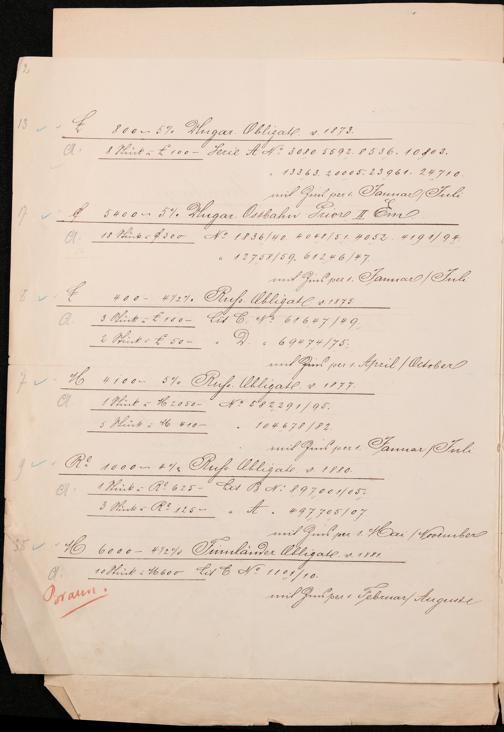 12
13 £ 800 - 5% Ungar. Obligat. v. 1873.
a. 8 Stück = £ 100 - Serie A No 3080. 5592. 8536. 10803.
" 13363. 21005. 23961. 24710.
mit Zins per 1. Januar / Juli
17 5400 - 5% Ungar. Ostbahn Prior II Em
a. 18 Stück = 300 No 1836/40. 4048/51. 4052. 4191/94.
" 12758/59. 61246/47.
mit Zins per 1. Januar / Juli
8 £ 400 - 4½% Russ. Obligat. v. 1875
a. 3 Stück = £ 100 - Lit C. No 61647/49.
2 Stück = £ 50 - " D. " 69474/75.
mit Zins per 1. April / October
7 M 4100 - 5% Russ. Obligat. v. 1877.
a. 1 Stück = M 2050 - No 582291/95.
5 Stück = M 410 - " 104678/82
mit Zins per 1. Januar / Juli
9 Ro 1000 - 4% Russ. Obligat. v. 1880.
a. 1 Stück = Ro 625 - Lit B No 897001/05.
3 Stück = Ro 125 - " A " 497705/07
mit Zins per 1. Mai / November
35 M 6000 - 4½% Finnländer Obligat. v. 1881
a. 10 Stück = M 600 Lit C No 1101/10.
mit Zins per 1. Februar / Auguste
Braun.